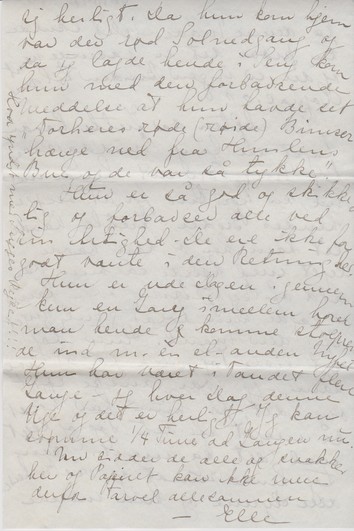 ej heiligt. Da hun kom hjem
var der rød Solnedgang og
da jeg lagde hende i Seng kom
hun med den forbavsende
Meddelelse at hun havde set
"Vorherres røde (røide) Bimser
hænge ned fra Himlens
Bue og de var så tykke"!
Hun er så god og skikke
lig og forbavser alle ved
sin Ærlighed - de ere ikke for
godt vante i den Retning her
Hun er ude Dagen igennem
kun en Gang imellem hører
man hende komme
de ind m. én el. anden
Hun har været i Vandet flere
Gange - jeg hver dag denne
Uge og det er heiligt. Jeg kan
svømme 1/4 Time ad Gangen nu
Nu sidder de alle og snakker
her og Papiret kan ikke mere
derfor Farvel allesammen
- Elle